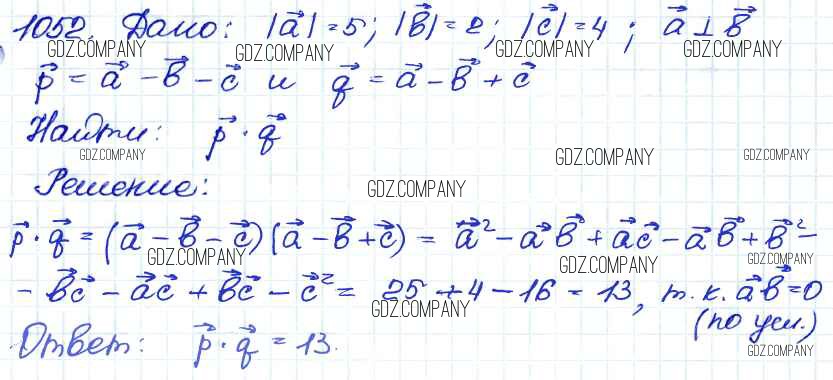 1052. Дано: |a⃗|=5; |b⃗|=2; |c⃗|=4; a⃗ ⊥ b⃗
GDZ.COMPANY GDZ.COMPANY GDZ.COMPANY GDZ.COMPANY
p⃗ = a⃗ - b⃗ - c⃗ и q⃗ = a⃗ - b⃗ + c⃗
Найти: p⃗ · q⃗
GDZ.COMPANY GDZ.COMPANY GDZ.COMPANY
Решение:
GDZ.COMPANY
p⃗ · q⃗ = (a⃗ - b⃗ - c⃗)(a⃗ - b⃗ + c⃗) = a⃗² - a⃗b⃗ + a⃗c⃗ - a⃗b⃗ + b⃗² -
GDZ.COMPANY GDZ.COMPANY GDZ.COMPANY
- b⃗c⃗ - a⃗c⃗ + b⃗c⃗ - c⃗² = 25 + 4 - 16 = 13, т.к. a⃗b⃗ = 0
GDZ.COMPANY
(по усл.)
Ответ: p⃗ · q⃗ = 13.
GDZ.COMPANY